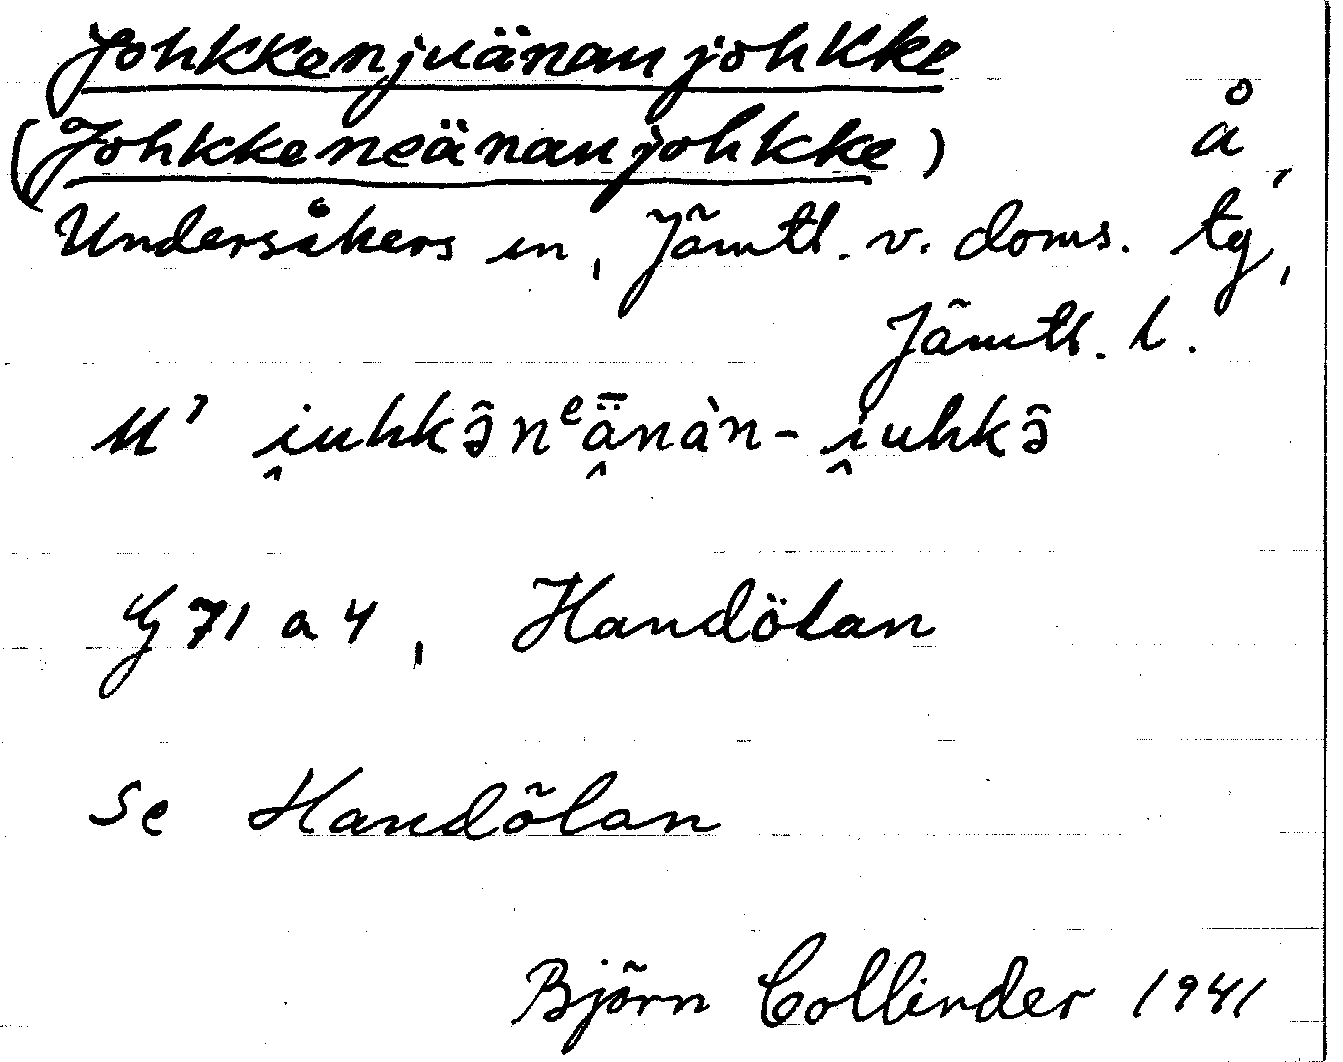 Johkkenjuänanjohkke
(Johkkeneänanjohkke) å,
Undersåkers sn, Jämtl. v. doms. tg,
Jämtl. l.
U' i̭uhkə̂nᵉǟ̭nàn-i̭uhkə̂
G 71 a 4, Handölan
Se Handölan
Björn Collinder 1941